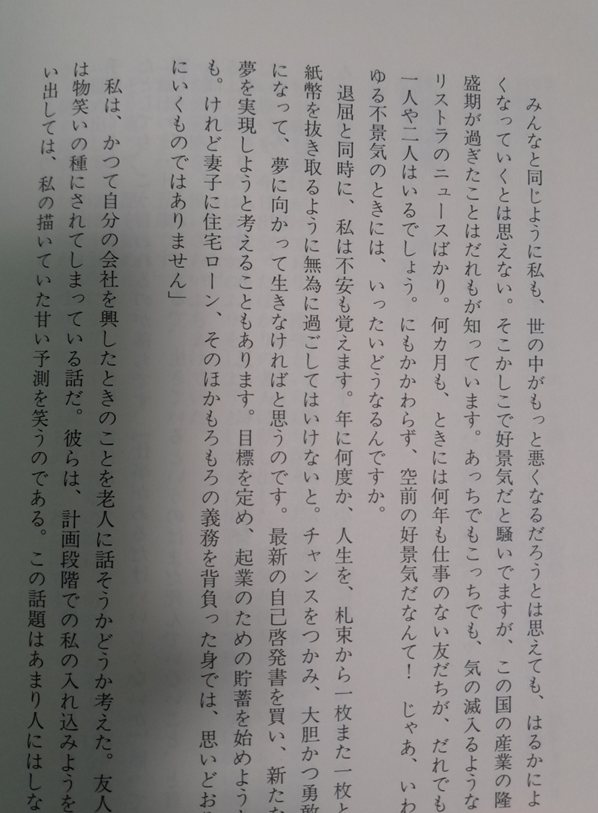 みんなと同じように私も、世の中がもっと悪くなるだろうとは思えても、はるかによ
くなっていくとは思えない。そこかしこで好景気だと騒いでますが、この国の産業の隆
盛期が過ぎたことはだれもが知っています。あっちでもこっちでも、気の滅入るような
リストラのニュースばかり。何カ月も、ときには何年も仕事のない友だちが、だれでも
一人や二人はいるでしょう。にもかかわらず、空前の好景気だなんて！　じゃあ、いわ
ゆる不景気のときには、いったいどうなるんですか。
退屈と同時に、私は不安も覚えます。年に何度か、人生を、札束から一枚また一枚と
紙幣を抜き取るように無為に過ごしてはいけないと。チャンスをつかみ、大胆かつ勇敢
になって、夢に向かって生きなければと思うのです。最新の自己啓発書を買い、新たな
夢を実現しようと考えることもあります。目標を定め、起業のための貯蓄を始めようと
も。けれど妻子に住宅ローン、そのほかもろもろの義務を背負った身では、思いどおり
にいくものではありません」
私は、かつて自分の会社を興したときのことを老人に話そうかどうか考えた。友人
は物笑いの種にされてしまっている話だ。彼らは、計画段階での私の入れ込みようを
い出しては、私の描いていた甘い予測を笑うのである。この話題はあまり人にはしな